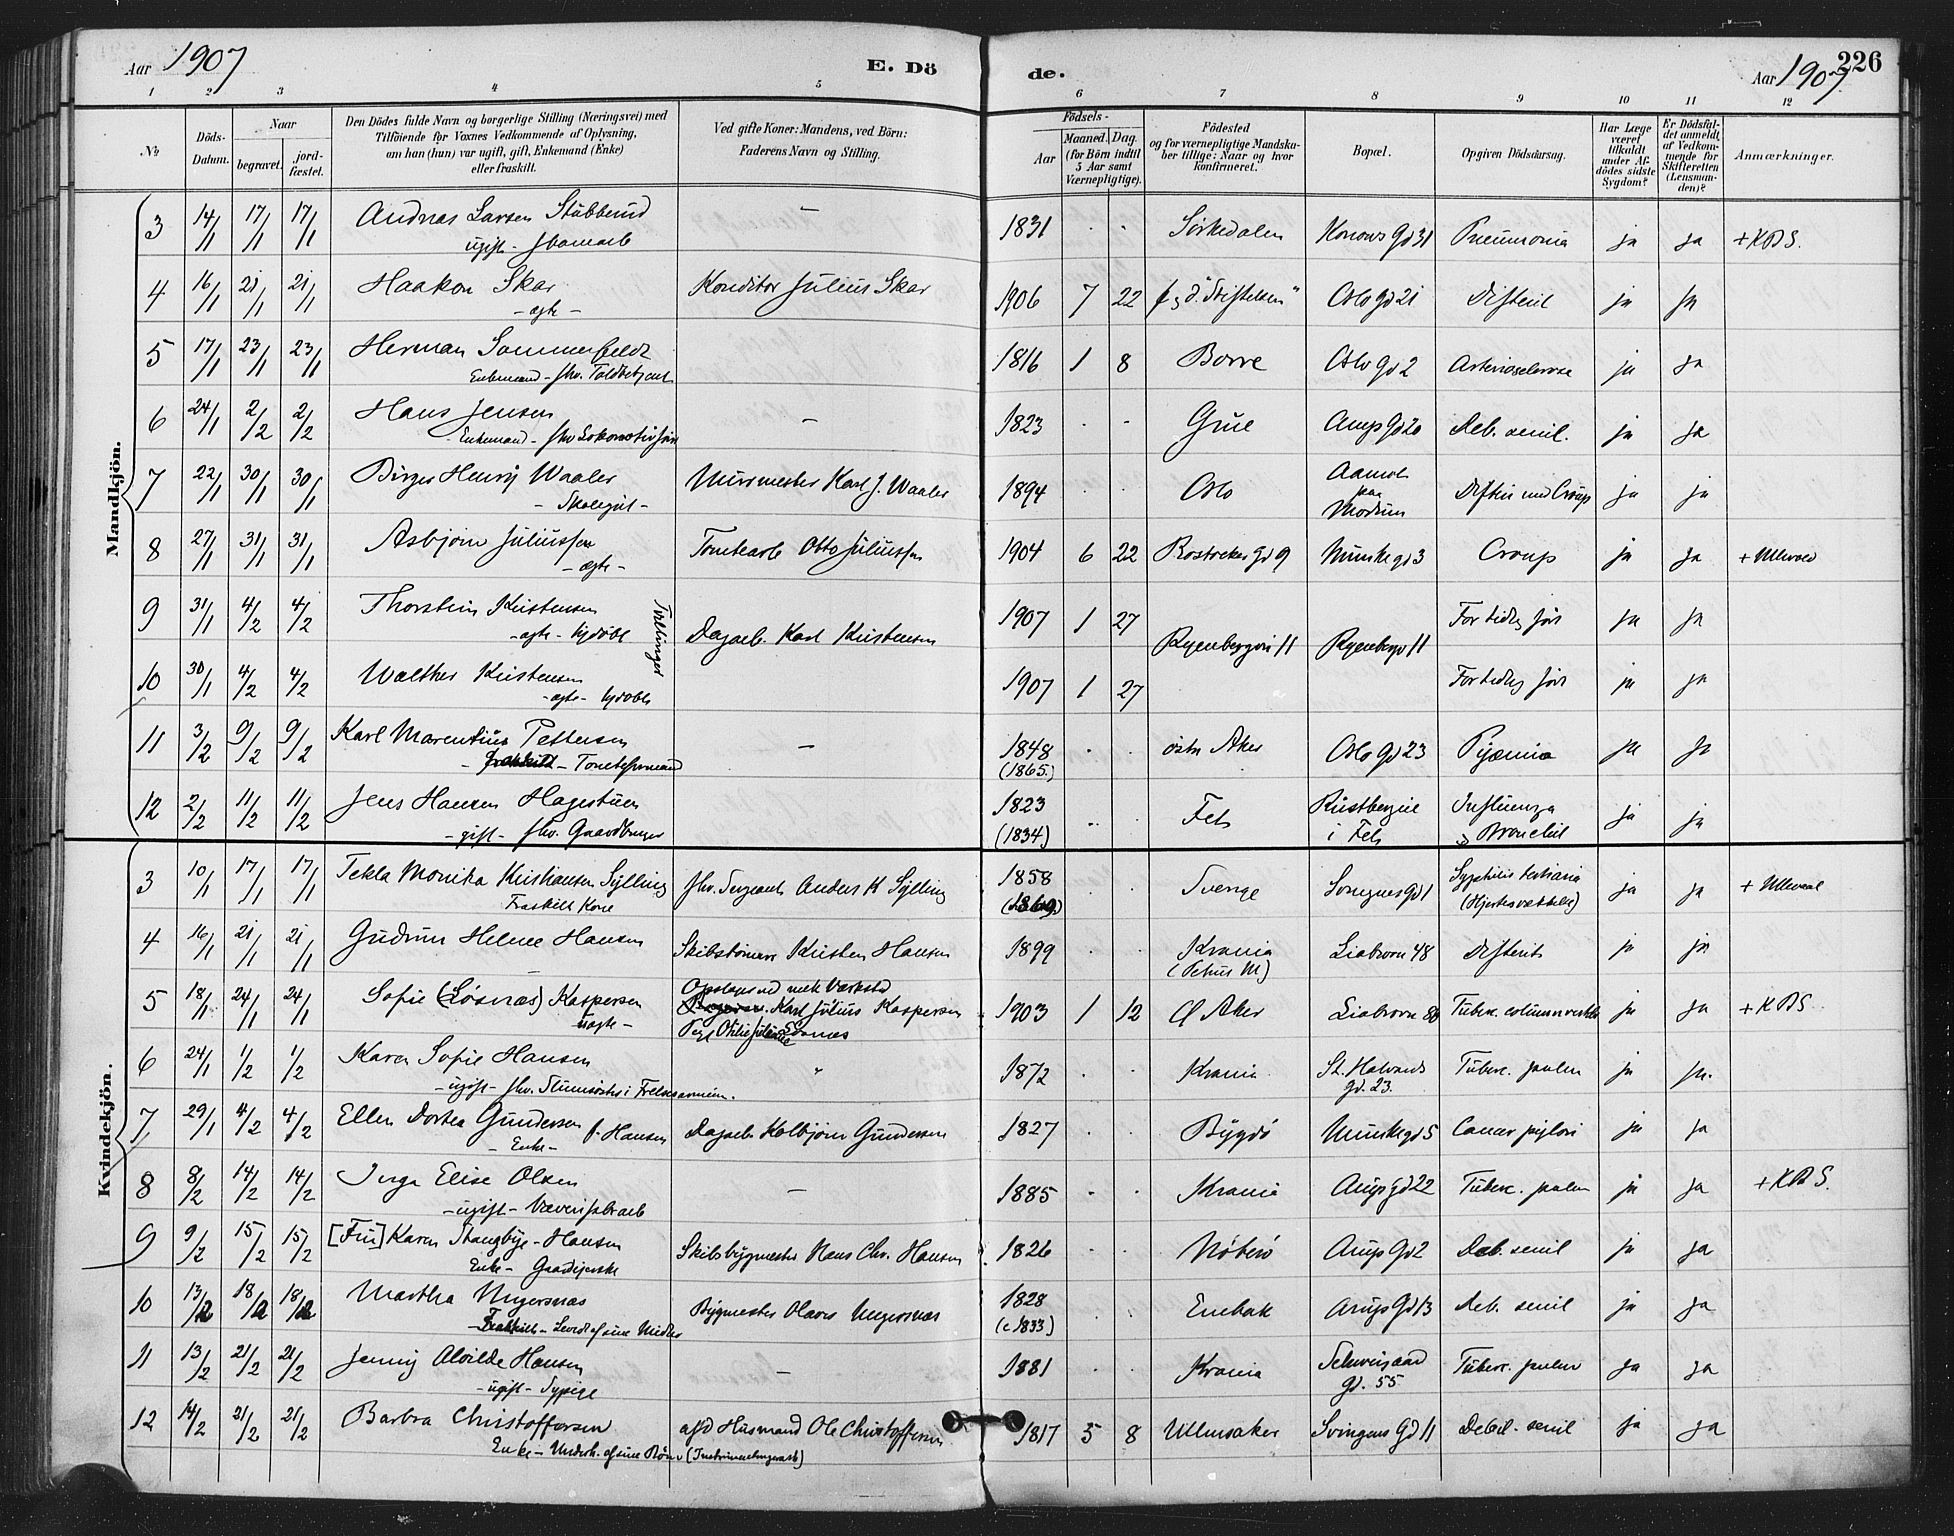 Aar 1907
E. Dö
de.
Aar 1907
226
1 2 3 4 5 6 7 8 9 10 11 12
No
Döds-Datum.
Naar
begravet.
jordfæstet.
Den Dödes fulde Navn og borgerlige Stilling (Næringsvei) med
Tilföiende for Voxnes Vedkommende af Oplysning,
om han (hun) var ugift, gift, Enkemand (Enke)
eller fraskilt.
Ved gifte Koner: Mandens, ved Börn:
Faderens Navn og Stilling.
Födsels-
Aar
Maaned. Dag.
(for Börn indtil
5 Aar samt
Værnepligtige).
Födested
og for værnepligtige Mandskaber tillige: Naar og hvor
konfirmeret.
Bopæl.
Opgiven Dödsaarsag.
Har Læge
været
tilkaldt
under Afdödes sidste
Sygdom?
Er Dödsfaldet anmeldt
af Vedkommende for
Skifteretten
(Lensmanden)?
Anmærkninger.
Mandkjön.
3 14/1 17/1 17/1 Andreas Larsen Stubberud — 1831 . . Sörkedalen Konows Gd 31 Pneumonia ja ja + KDS.
ugift -
4 16/1 21/1 21/1 Haakon Skar Konditor Julius Skar 1906 7 22 "Stiftelsen" Oslo gd 21 Difterit ja ja
- ægte -
5 17/1 23/1 23/1 Herman Sommerfeldt 1816 1 8 Borre Oslo Gd 2 Arteriosclerose ja ja
Enkemand - fhv. Toldbetjent
6 24/1 2/2 2/2 Hans Jensen — 1823 . . Grue Arups Gd 20 Deb. senil. ja ja
- Enkemand - fhv Lokomotivförer
7 22/1 30/1 30/1 Birger Henry Waaler Murmester Karl J. Waaler 1894 . . Oslo Aamot paa Modum Difteri med Croup ja ja
- Skolegut -
8 27/1 31/1 31/1 Asbjörn Juliussen Tomtearb Otto Juliussen 1904 6 22 Rostockes Gd 9 Munkegd 3 Croup ja ja + Ulleval
- ægte -
9 31/1 4/2 4/2 Thorstein Kristensen Dagarb. Karl Kristensen 1907 1 27 Ryenbergvei 11 Ryenbergv 11 For tidlig född ja ja
- ægte - hjdöbt
Tvillinger
10 30/1 4/2 4/2 Walther Kristensen 1907 1 27 For tidlig född ja ja
- ægte - hjdöbt
11 3/2 9/2 9/2 Karl Marentius Pettersen — 1848 . . östre Aker Oslo Gd 23 Pyæmia ja ja
- Fraskilt - Tomteformand (1865.)
12 2/2 11/2 11/2 Jens Hansen Hagestuen 1823 . . Fet i Fet Influenza ja ja
- gift - fhv. Gaardbruger (1834) & Bronchit
Kvindekjön.
3 10/1 17/1 17/1 Tekla Monika Kristiansen Sylling fhv. Sergeant Anders K Sylling 1858 . . Sverige Sorgnes Gd 1 Syphilis tertiaria ja ja + Ulleval
Fraskilt Kone (Hjertesvækkelse)
4 16/1 21/1 21/1 Gudrun Helene Hansen Skibstömmer Kristen Hansen 1899 . . Krania Liabrovn 48 Difterit ja ja
(Petrus M)
5 18/1 24/1 24/1 Sofie (Lösnæs) Kaspersen Opslager ved mek Værksted
Karl Julius Kaspersen 1903 1 12 Ø Aker Liabrovn 86 Tuberc. column vertebr ja ja + KDS
uægte - Pige Otilie Juliane Lösnæs
6 24/1 1/2 1/2 Karen Sofie Hansen " 1872 . . Krania St. Halvards Gd. 23. Tuberc. pulm ja ja.
- ugift - fhv. Slumsöster i Frelsesarmeen.
7 29/1 4/2 4/2 Ellen Dortea Gundersen f. Hansen Dagarb Kolbjörn Gundersen 1827 . . Bygdö Munkegd 5 Cancer pylori ja ja
- Enke -
8 8/2 14/2 14/2 Inga Elise Olsen — 1885 . . Krania Arups Gd 22 Tuberc. pulm ja ja + KDS.
- ugift - Væverifabrarb
9 9/2 15/2 15/2 [Fru] Karen Stangbye-Hansen Skibsbygmester Hans Chr. Hansen 1826 . . Nöterö Arups Gd 2 Deb. senil ja ja
Enke - Gaardejerske
10 13/2 18/2 18/2 Martha Ungersnæs Bygmester Olaves Ungersnæs 1828 . . Enebak Arups Gd 13 Deb. senil ja ja
- Fraskilt - Levede af sine Midler (c 1833)
11 13/2 21/2 21/2 Jenny Alvilde Hansen — 1881 . . Krania Schweigaard Gd. 55 Tuberc. pulm ja ja
- ugift - Sypige
12 14/2 21/2 21/2 Barbra Christoffersen afd Husmand Ole Christoffersen 1817 5 8 Ullensaker Svingens Gd 11 Debil. senil ja ja
Enke - Underh. af sine Börn (Instrumentmagerarb)